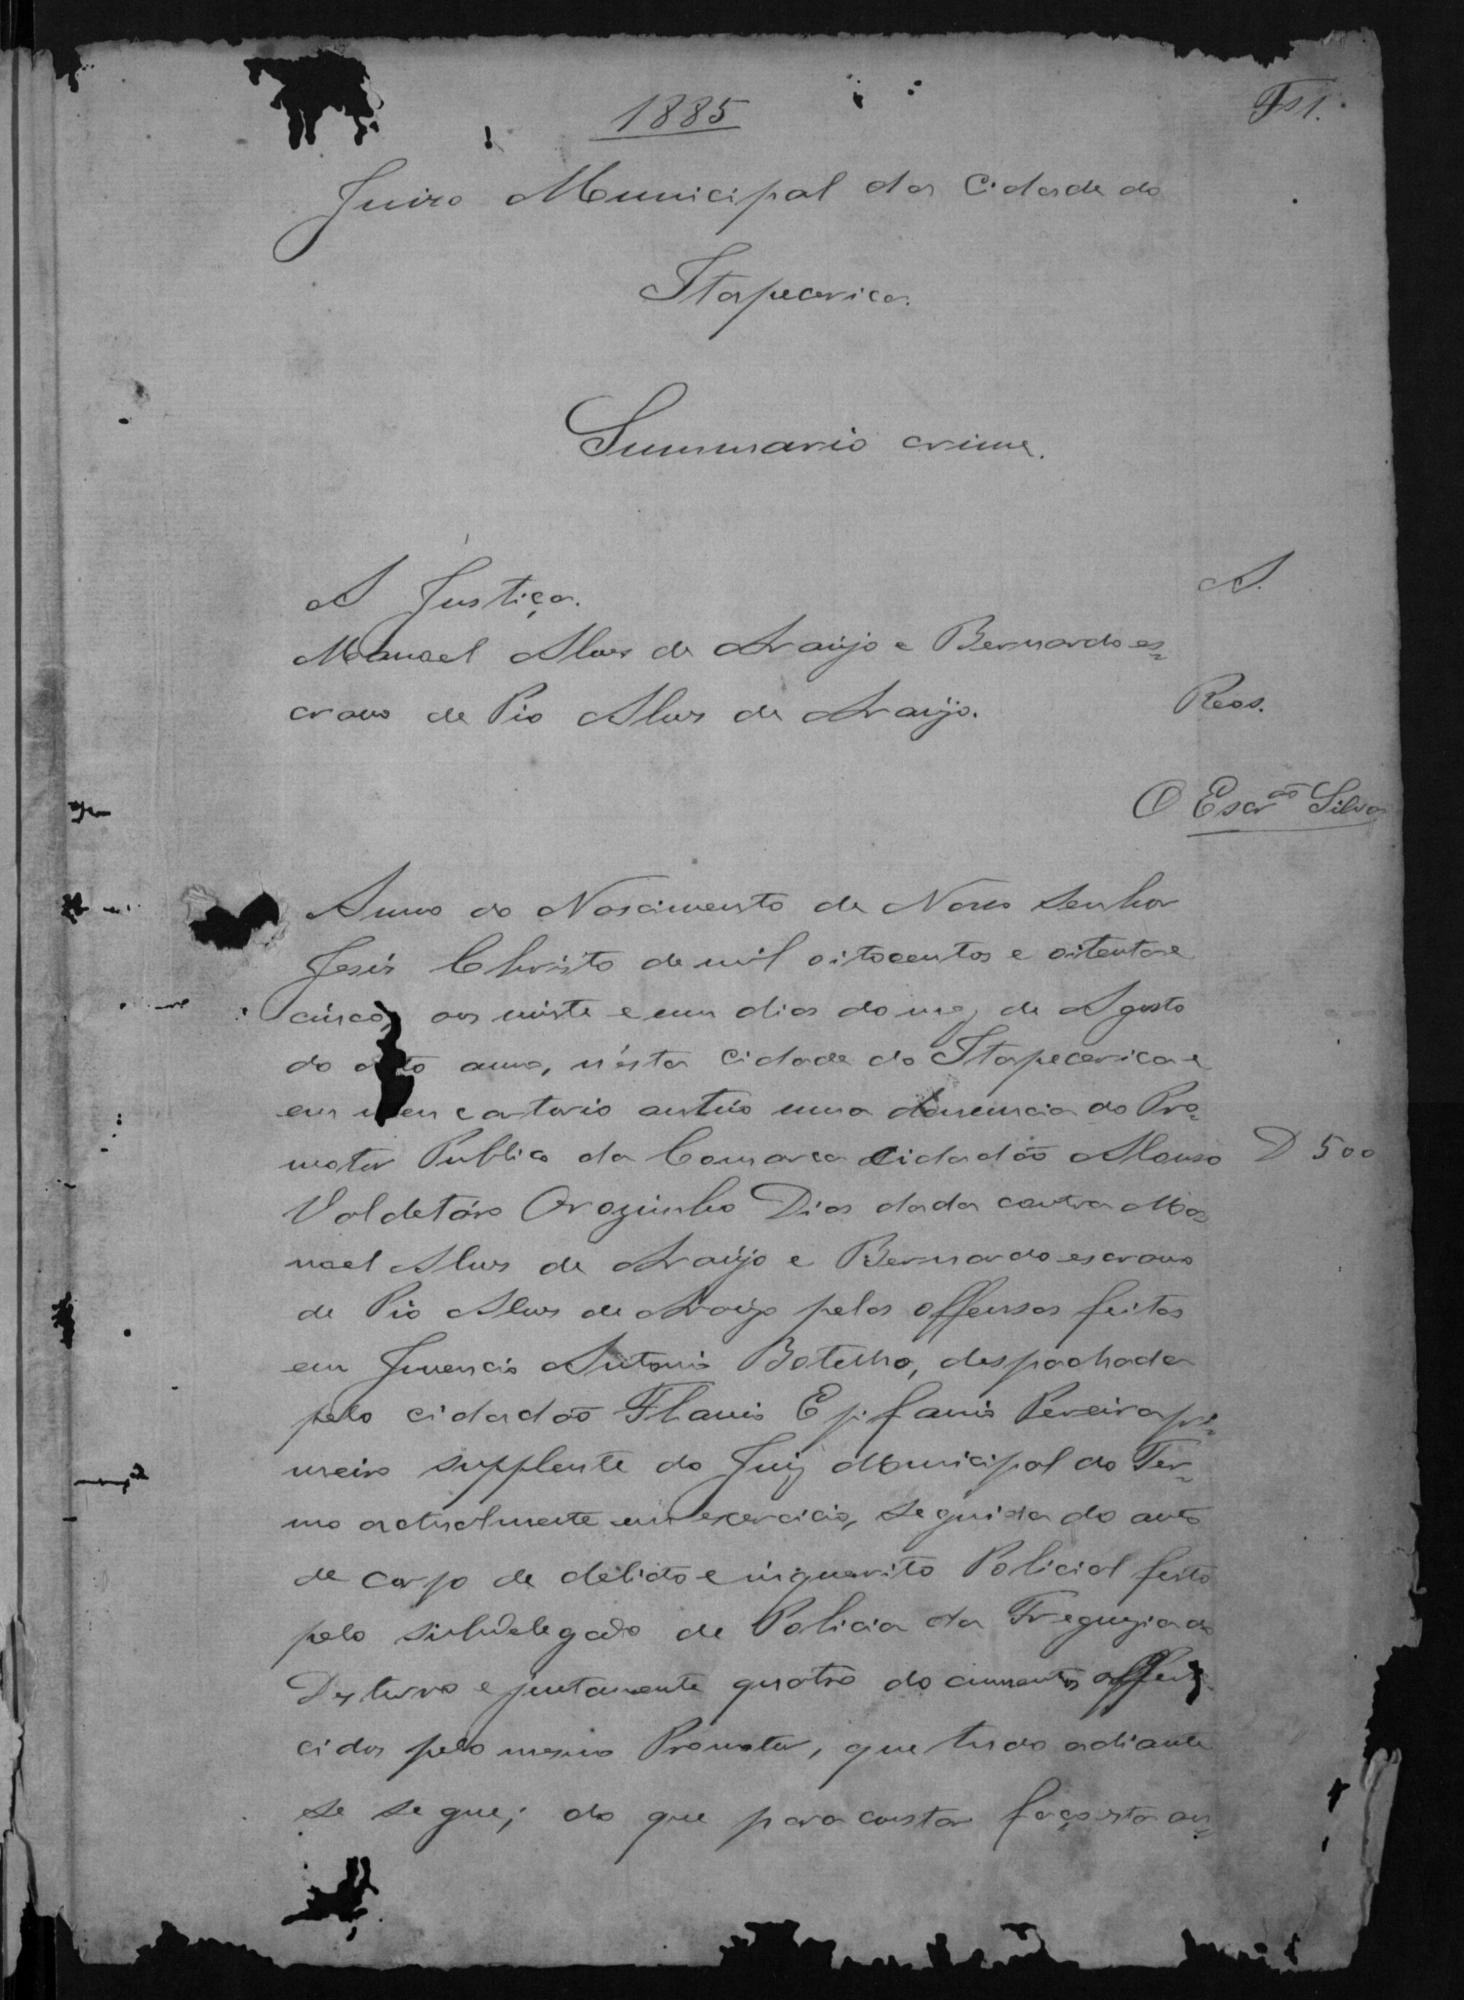 1885
Fs 1.
Juizo Municipal da Cidade do
Itapecerica.
Summario crime.
A Justiça. A.
Manael Alves de Araújo e Bernardo es=
cravo de Pio Alves de Araújo. Reos.
O Escr.ão Silva
Anno do Nascimento de Nosso Senhor
Jesús Christo de mil oitocentos e oitenta e
cinco, aos vinte e um dias do mez de Agosto
do dito anno, n'ésta Cidade do Itapecerica e
em meu cartorio autúo uma denuncia do Pro=
motor Publico da Comarca Cidadão Afonso D 500
Valdetáro Orozimbo Dias dada contra Ma
nael Alves de Araújo e Bernardo escravo
de Pio Alves de Araújo pelas offensas feitas
em Juvencio Antonio Botelho, despachada
pelo cidadão Flavio Epifanio Pereira pri=
meiro supplente do Juiz Municipal do Ter=
mo actualmente em exercicio, seguida do auto
de corpo de delicto e inquerito Policial feito
pelo subdelegado de Policia da Freguezia do
Desterro e juntamente quatro documentos offere
cidos pelo mesmo Promotor, que tudo adiante
se segue; do que para constar faço esta au=